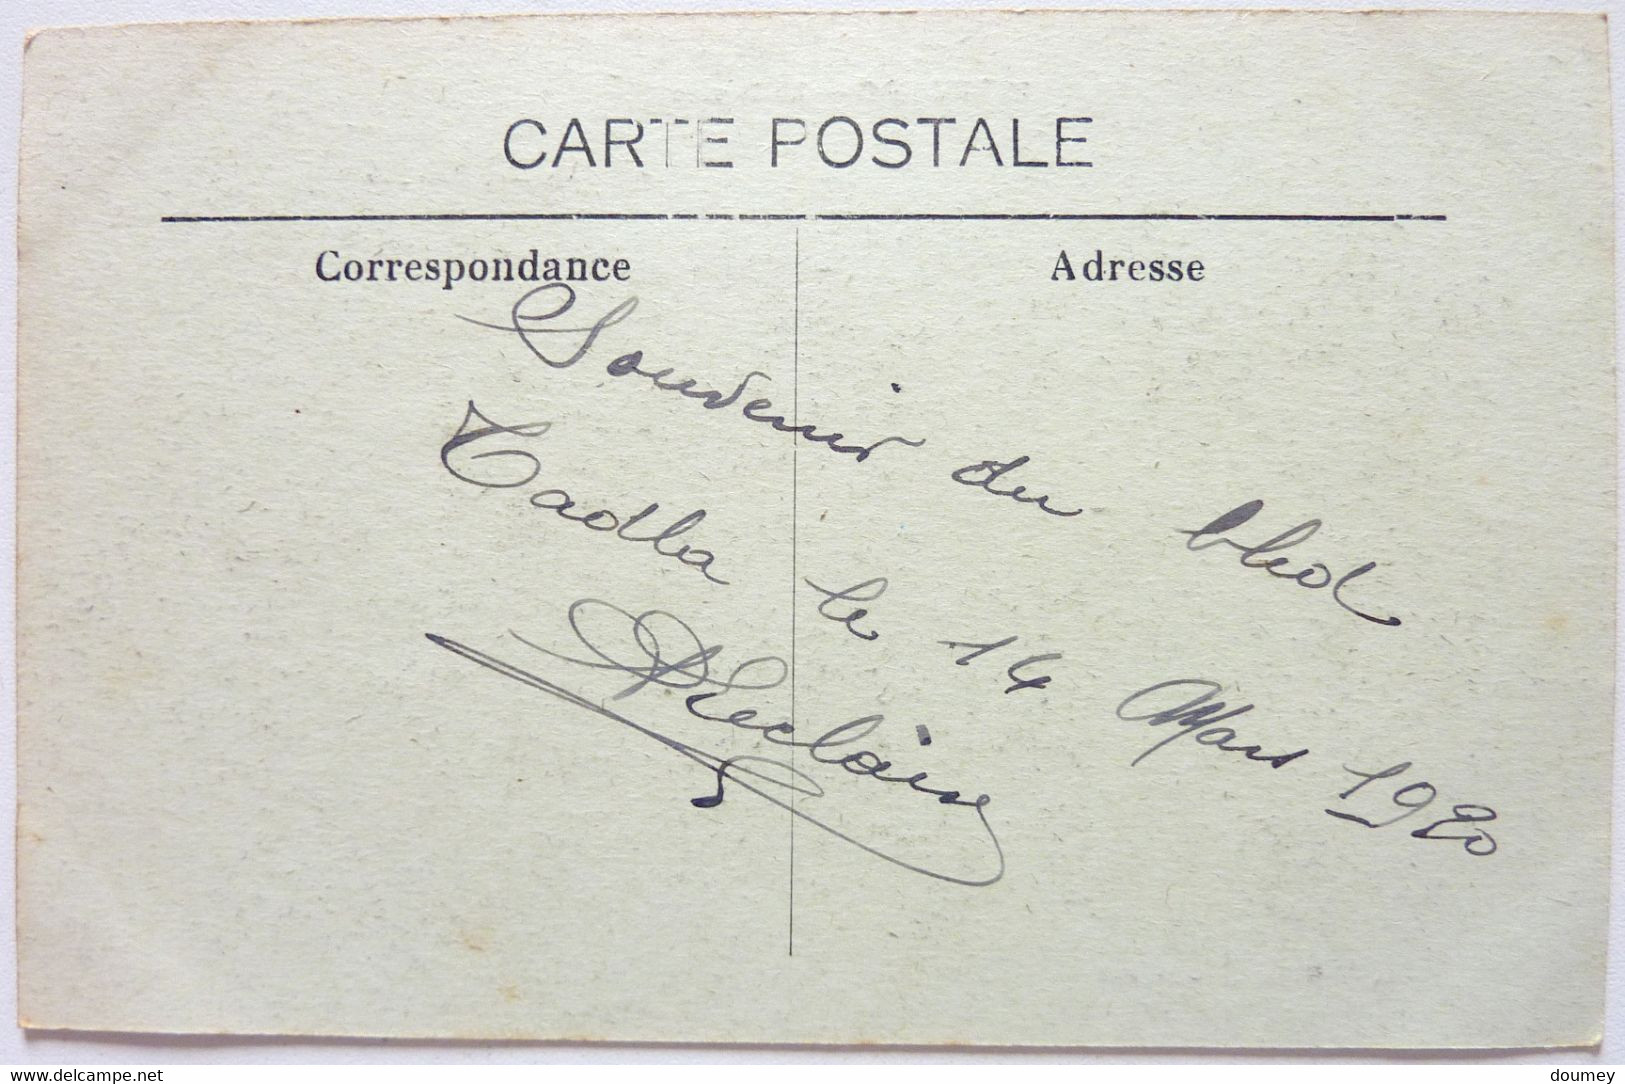 CARTE POSTALE
Correspondance
Adresse
Souvenir du bled
Tadla le 14 Mars 1920
delcampe.net
doumey